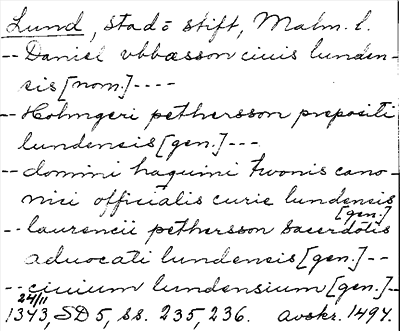 Lund, stad o stift, Malm. l.
-- Daniel vbbæsson ciuis lunden-
sis [nom.] ----
-- Holmgeri pethersson prepositi
lundensis [gen.] ---
-- domini haquini twonis cano-
nici officialis curie lundensis
[gen.]
-- laurencii pethersson sacerdotis
aduocati lundensis [gen.] --
-- ciuium lundensium [gen.] --
24/11
1343, SD 5, ss. 235, 236. avskr. 1494.